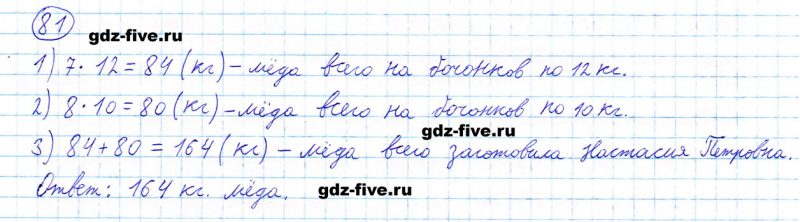 81
gdz-five.ru
1) 7 · 12 = 84 (кг) – мёда всего на бочонков по 12 кг.
2) 8 · 10 = 80 (кг) – мёда всего на бочонков по 10 кг.
gdz-five.ru
3) 84 + 80 = 164 (кг) – мёда всего заготовила Настасия Петровна.
Ответ: 164 кг. мёда.
gdz-five.ru